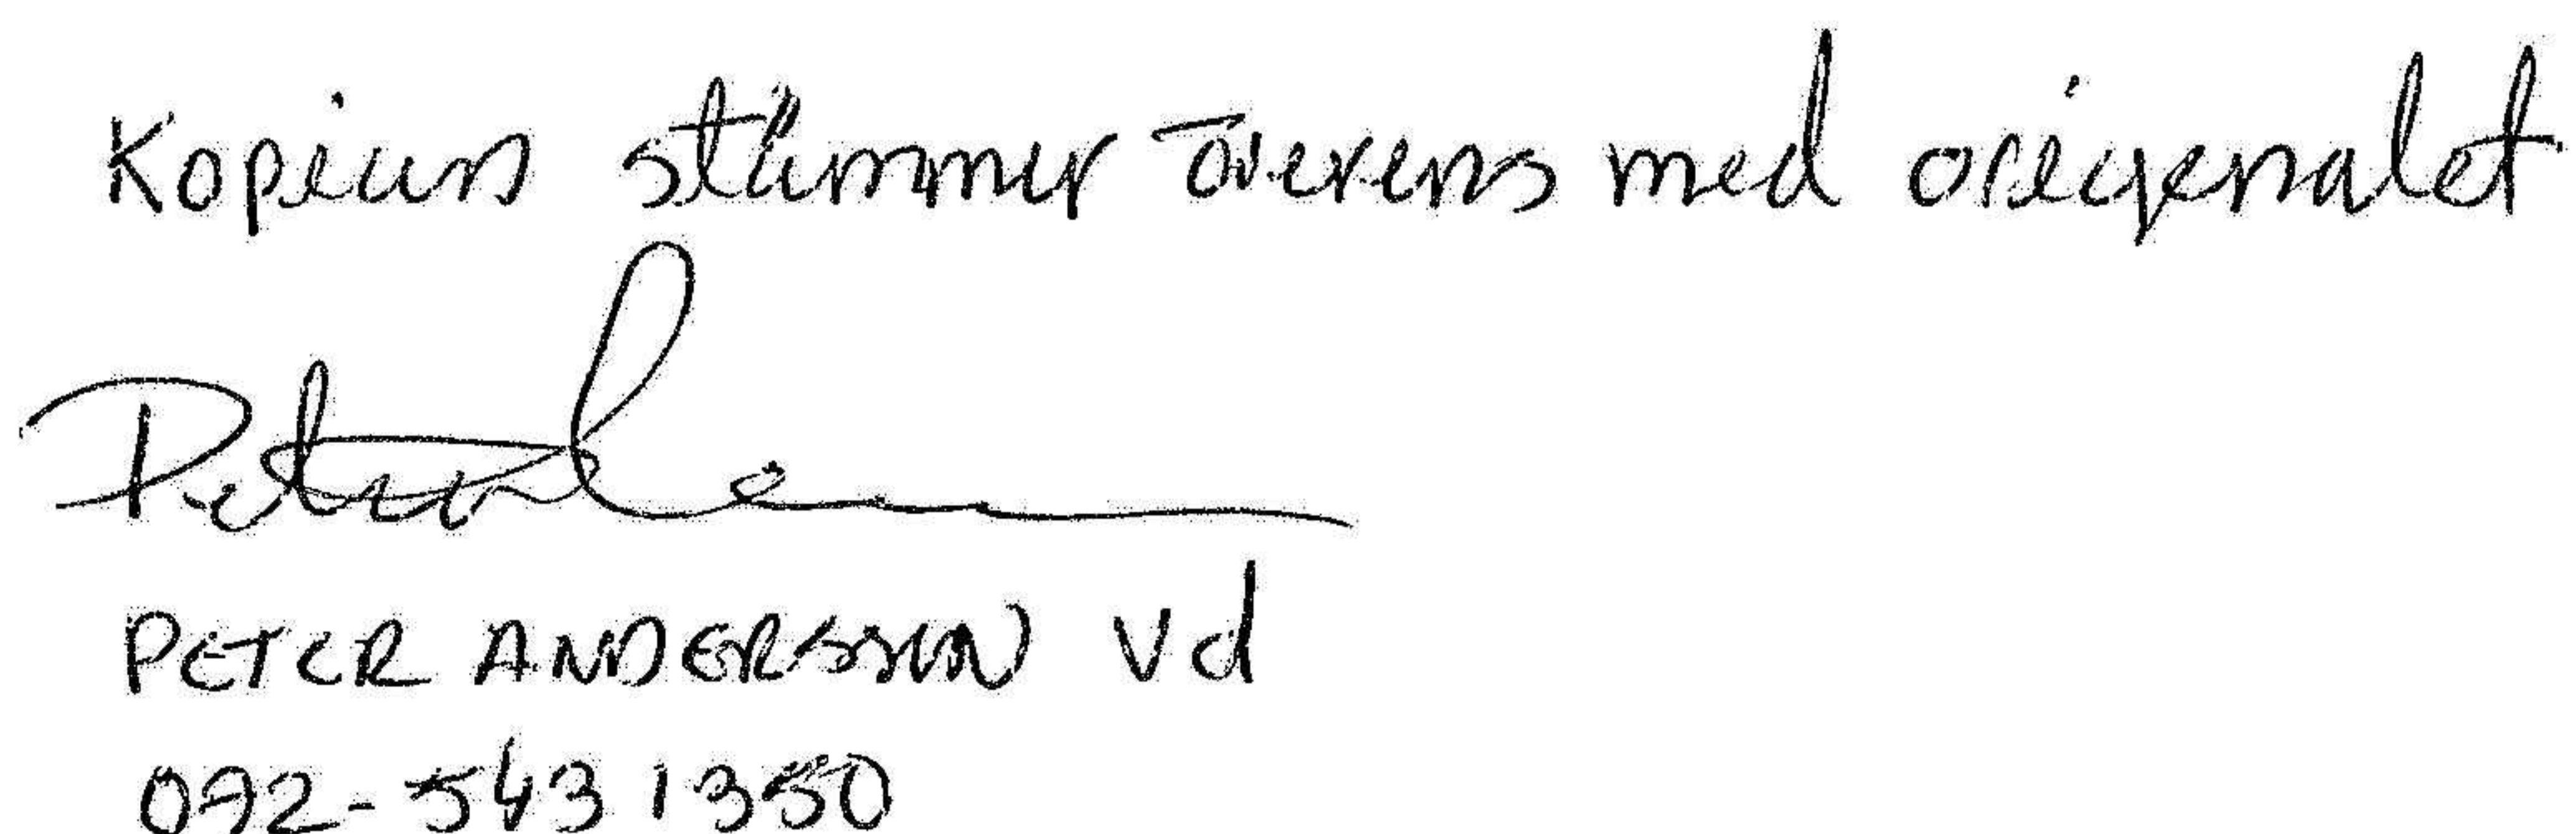 Kopian stämmer överens med originalet
PETER ANDERSSON Vd
072-543 1350